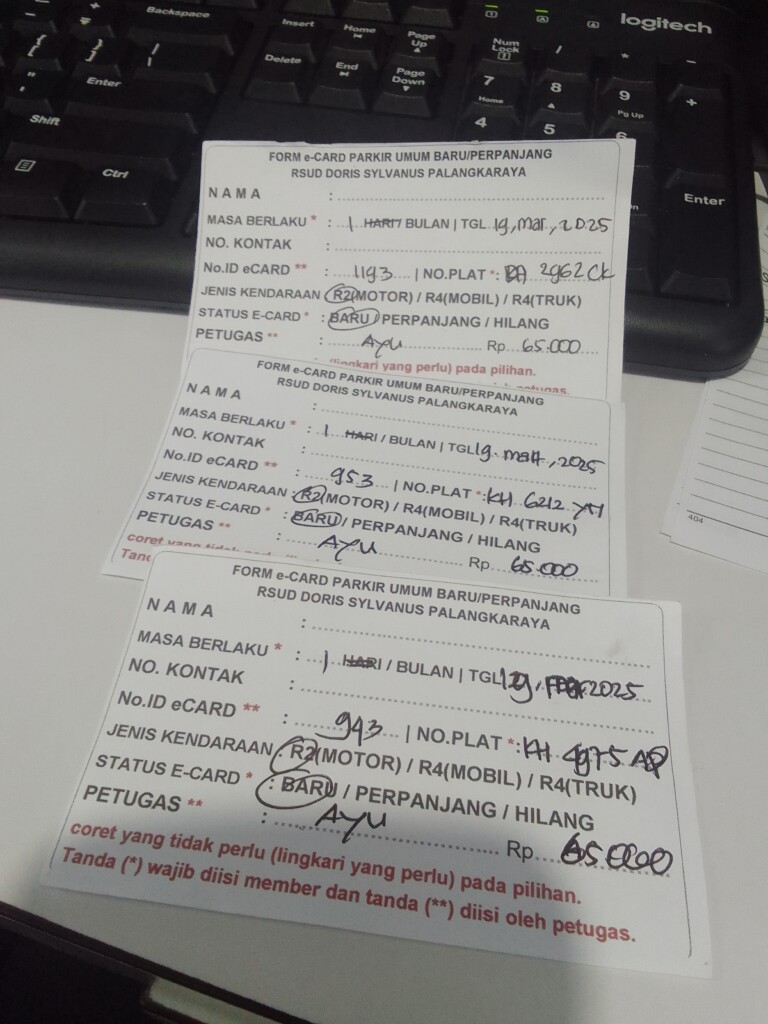 Backspace
Insert
Home
Page Up
logitech
Num Lock
/
*
-
Enter
Delete
End
Page Down
7
Home
8
9
Pg Up
+
Shift
4
5
6
Ctrl
Enter
FORM e-CARD PARKIR UMUM BARU/PERPANJANG
RSUD DORIS SYLVANUS PALANGKARAYA
N A M A :
MASA BERLAKU * : 1 HARI / BULAN | TGL 19, Mar, 2025
NO. KONTAK :
No.ID eCARD ** : 1193 | NO.PLAT *: DA 2962 CK
JENIS KENDARAAN : R2(MOTOR) / R4(MOBIL) / R4(TRUK)
STATUS E-CARD * : BARU / PERPANJANG / HILANG
PETUGAS ** : Ayu Rp 65.000
(lingkari yang perlu) pada pilihan.
petugas.
FORM e-CARD PARKIR UMUM BARU/PERPANJANG
RSUD DORIS SYLVANUS PALANGKARAYA
N A M A :
MASA BERLAKU * : 1 HARI / BULAN | TGL 19. , 2025
NO. KONTAK :
No.ID eCARD ** : 953 | NO.PLAT *: KH 6212
JENIS KENDARAAN : R2(MOTOR) / R4(MOBIL) / R4(TRUK)
STATUS E-CARD * : BARU / PERPANJANG / HILANG
PETUGAS ** : AYU Rp 65.000
coret yang tidak
FORM e-CARD PARKIR UMUM BARU/PERPANJANG
RSUD DORIS SYLVANUS PALANGKARAYA
N A M A :
MASA BERLAKU * : 1 HARI / BULAN | TGL 19, 2025
NO. KONTAK :
No.ID eCARD ** : 943 | NO.PLAT *: KH 4975 AP
JENIS KENDARAAN : R2(MOTOR) / R4(MOBIL) / R4(TRUK)
STATUS E-CARD * : BARU / PERPANJANG / HILANG
PETUGAS ** : AYU Rp 65.000
coret yang tidak perlu (lingkari yang perlu) pada pilihan.
Tanda (*) wajib diisi member dan tanda (**) diisi oleh petugas.
404